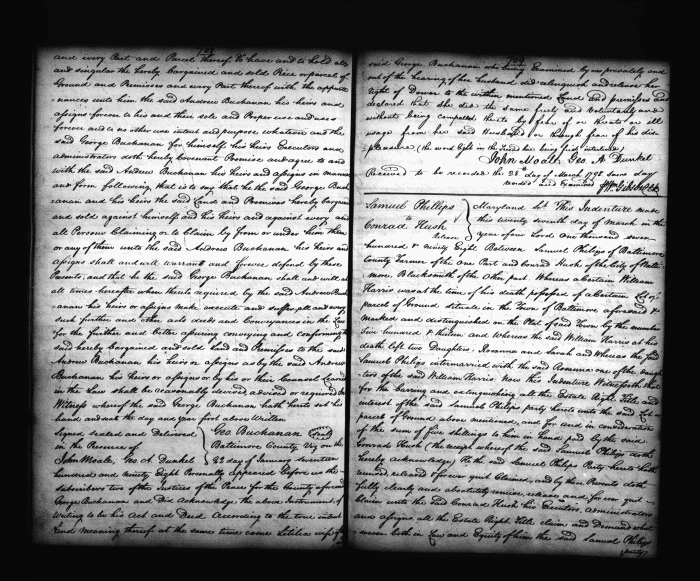 and every Part and Parcel thereof to have and to hold all
and singular the hereby Bargained and sold Piece or parcel of
Ground and Premises and every Part thereof with the appurte
nances unto him the said Andrew Buchanan his heirs and
assigns forever to his and their sole and Proper use and uses
forever and to no other use intent and purpose whatever and the
said George Buchanan for himself his heirs Executors and
administrators doth hereby Covenant Promise and agree to and
with the said Andrew Buchanan his heirs and assigns in manner
and form following, that is to say that he the said George Buch
canan and his heirs the said Land and Premises hereby bargained
and sold against himself and his heirs and against every and
all Persons Claiming or to Claim by from or under him them
or any of them unto the said Andrew Buchanan his heirs and
assigns shall and will warrant and forever defend by these
Presents, and that he the said George Buchanan shall and will at
all times hereafter when thereto required by the said Andrew Bu
canan his heirs or assigns make execute and suffer all and every
such further and other acts deeds and Conveyances in the law
for the further and better assuring conveying and confirming
said hereby bargained and sold Land and Premises to the said
Andrew Buchanan his heirs or assigns as by the said Andrew
Buchanan his heirs or assigns or by his or their Counsel Learned
in the Law shall be reasonably devised, advised or required In
Witness whereof the said George Buchanan hath hereto set his
hand and seal the day and year first above Written
Signed sealed and Delivered Geo Buchanan
in the Presence of Baltimore County on the
John Moale, Geo A. Dunkel 23 day of January seventeen
hundred and ninety Eight Personally appeared Before us the
subscribers two of the Justices of the Peace for the County aforesaid
George Buchanan and Did Acknowledge the above Instrument of
Writing to be his Act and Deed According to the true intent
and meaning thereof at the same time came Letitia wife of
said George Buchanan who being Examined by us privately and
out of the hearing of her husband did relinquish and release her
right of Dower to the within mentioned Land and premises and
declared that she did the same freely and Voluntarily
without being compelled thereto by fear of or threats or ill
usage from her said Husband or through fear of his dis
pleasure (the word Eight in the Deed being first interlined)
John Moale Geo. A Dunkel
Received to be recorded the 28th day of March 1798 same day
recorded and Examined
Samuel Phillips Maryland Sct This Indenture made
to this twenty seventh day of March in the
Conrad Hush year of our Lord one thousand seven
hundred & ninety Eight Between Samuel Philips of Baltimore
County Farmer of the One Part and Conrad Hush of the City of Balti
more Blacksmith of the Other part. Whereas a Certain William
Harris was at the time of his death possessed of a Certain Lot or
parcel of Ground situate in the Town of Baltimore aforesaid &
marked and distinguished on the Plat of said Town by the number
five hundred & thirteen and whereas the said William Harris at his
death left two Daughters, Rosanna and Sarah and Whereas the said
Samuel Philips intermarried with the said Rosanna one of the Daugh
ters of the said William Harris. Now this Indenture Witnesseth that
for the barring and extinguishing all the Estate Right Title and
interest of the said Samuel Philips party hereto into the said Lot or
parcel of Ground above mentioned, and for and in consideration
of the sum of five shillings to him in hand paid by the said
Conrad Hush (the receipt whereof the said Samuel Philips doth
hereby acknowledge) He the said Samuel Philips Party hereto hath
remised released forever quit Claimed, and by these Presents doth
fully clearly and absolutely remise release and forever quit
Claim unto the said Conrad Hush his Executors, Administrators
and assigns all the Estate Right Title claim and Demand what
soever both in Law and Equity of him the said Samuel Philips
party